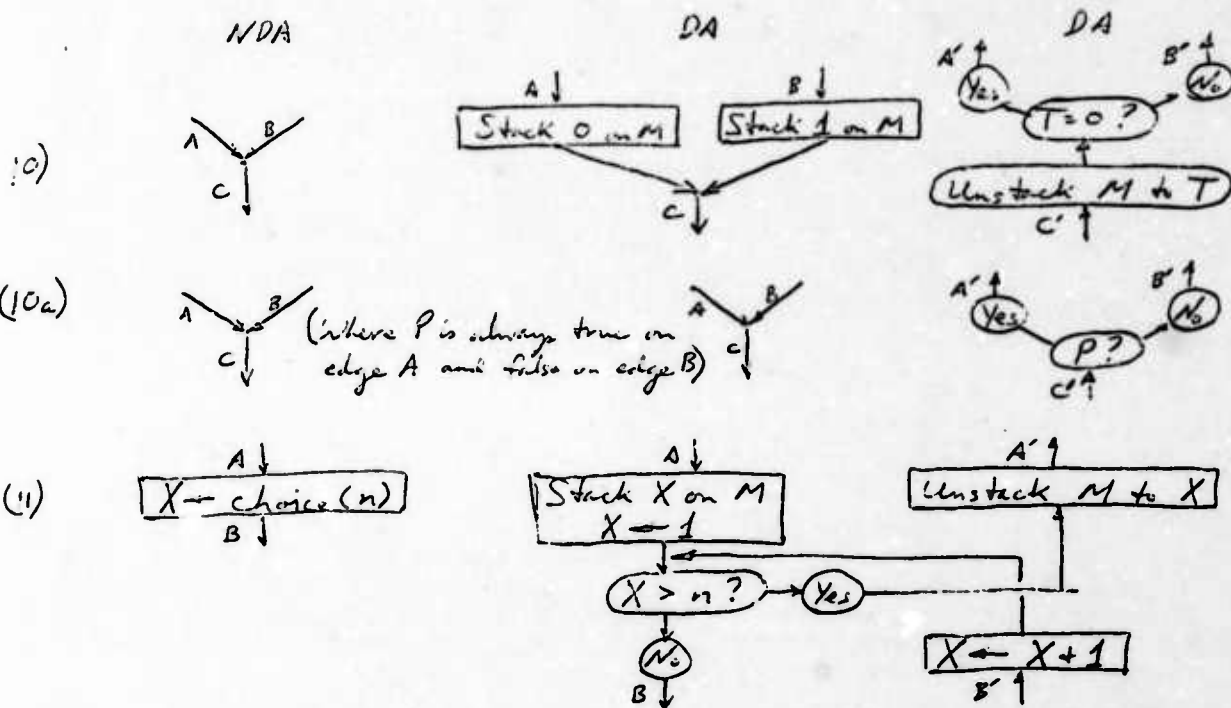 NDA DA DA
A B C
A B
Stack 0 on M Stack 1 on M
C
A' B'
Yes No
T=0?
Unstack M to T
C'
10)
(10a)
A B C
(where P is always true on
edge A and false on edge B)
A B C
A' B'
Yes No
P?
C'
(11)
A
X ← choice(n)
B
A
Stack X on M
X ← 1
X > n? Yes
No
B
A'
Unstack M to X
X ← X + 1
B'